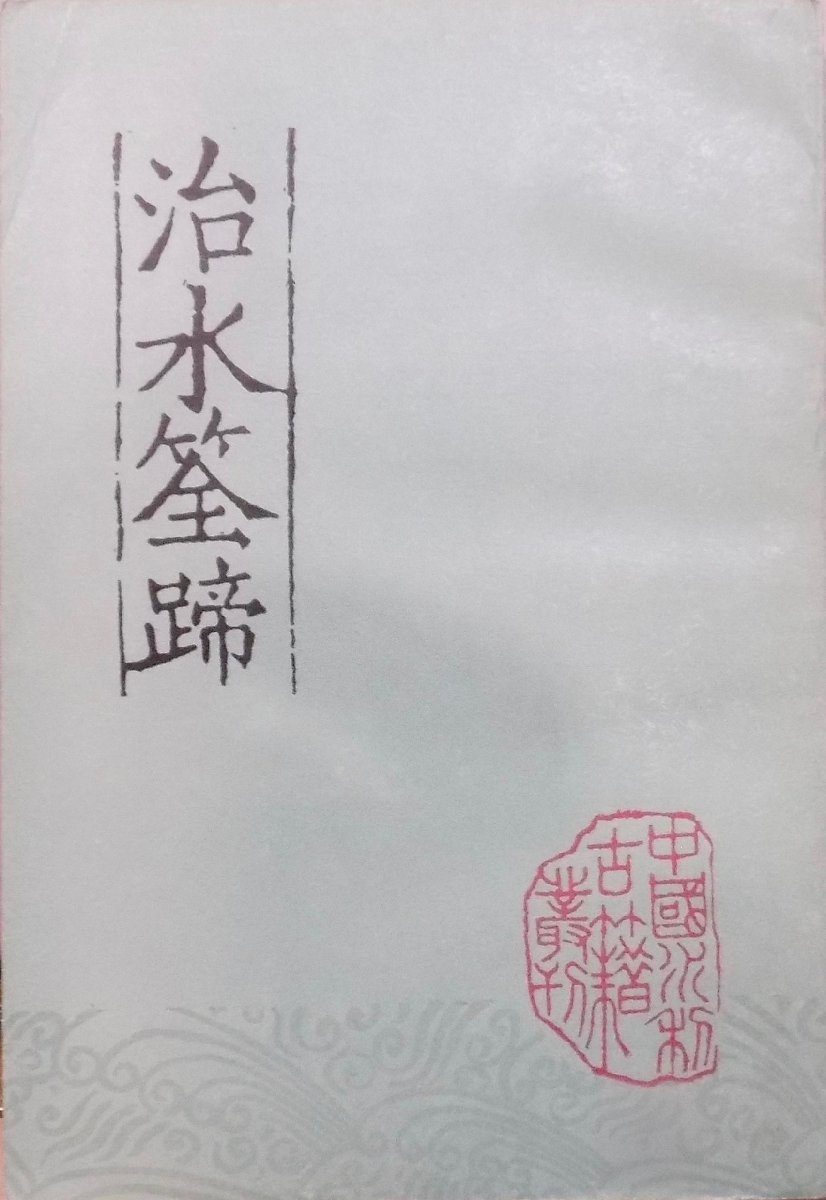 治水筌蹄
中國水利
古籍
叢刊